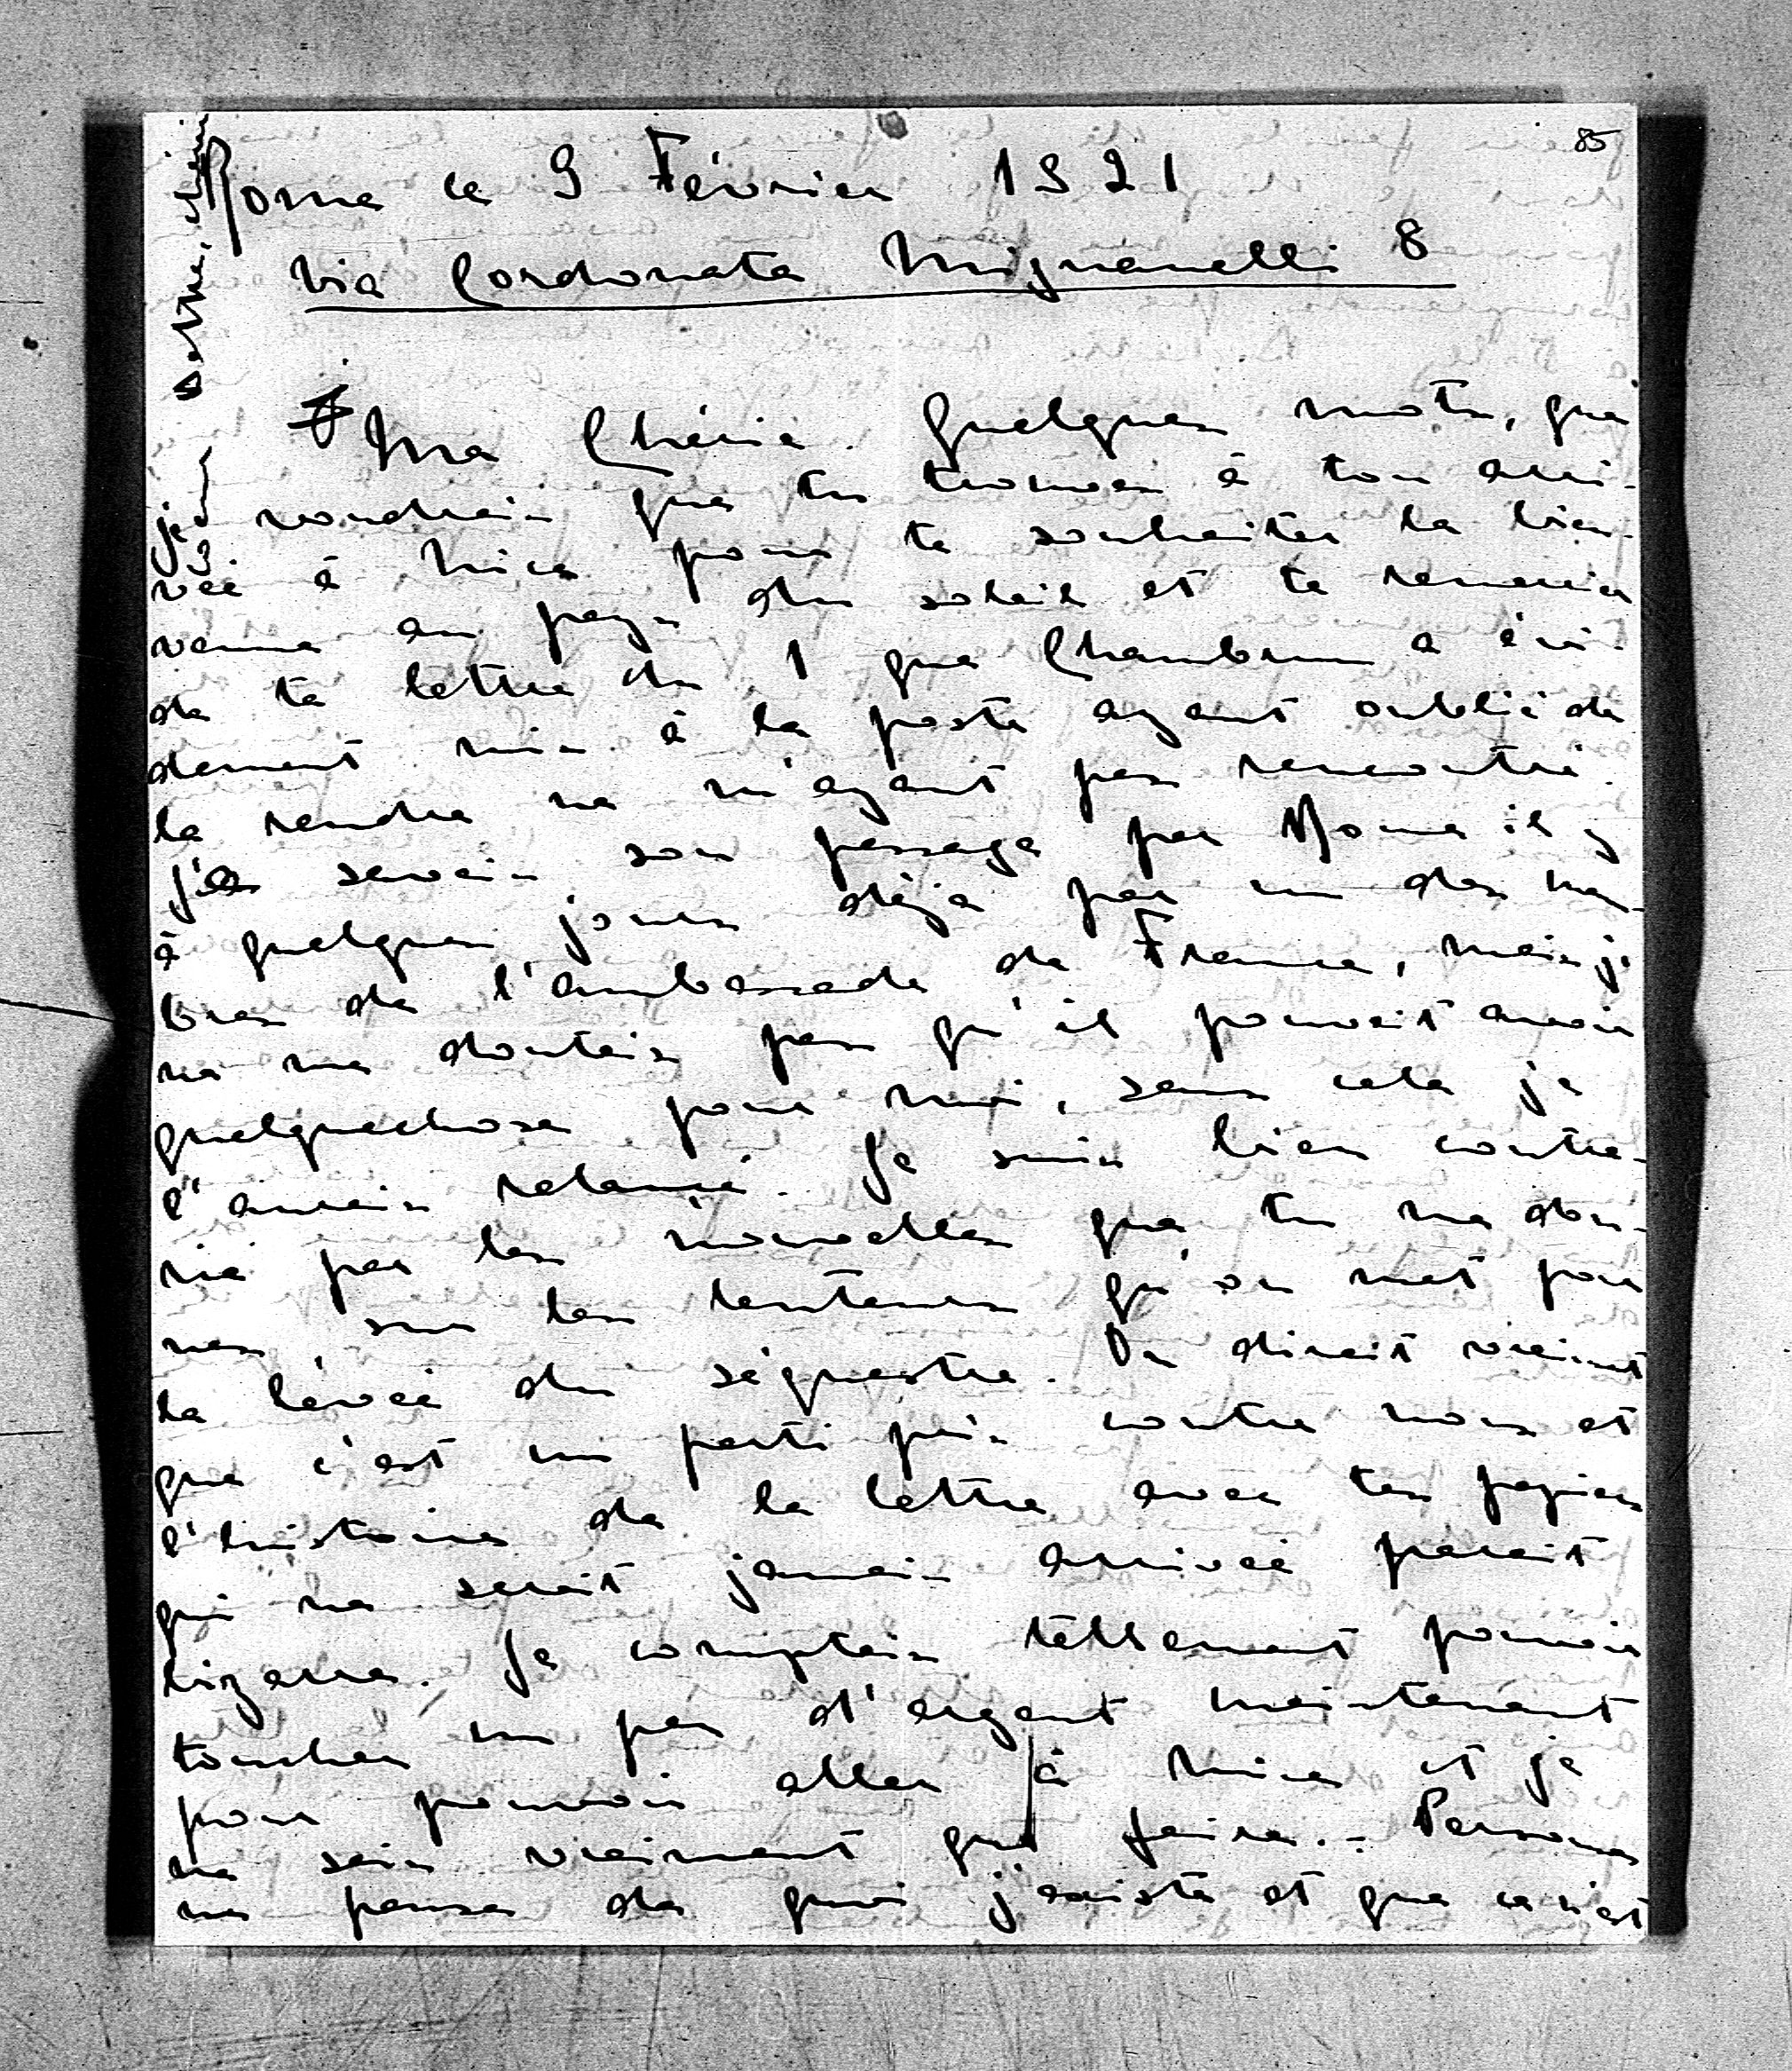 85
Rome ce 9 Février 1921
Via Cordonata Mignanelli 8
Ma Chérie. Quelques mots, que
je voudrais que tu trouves à ton arri-
vée à Nice pour te souhaiter la bien-
venue au pays du soleil et te remercier
de ta lettre du 1 que Chambrun a évi-
dement mis à la poste ayant oublié de
la rendre ne m'ayant pas rencontré.
J'es savais son passage par Rome il y
à quelques jours déjà par un des mem-
bres de l'ambassade de France, mais je
ne me doutais pas qu'il pouvait avoir
quelquechose pour moi, sans cela je
l'aurais relancé. Je suis bien contra-
rié par les nouvelles que tu me don-
nes sur les lenteurs qu'on met pour
la lévée du séquestre. On dirait vraiment
que c'est un parti pris contre nous et
l'histoire de la lettre avec tes papiers
qui ne serait jamais arrivée parait
bizarre. Je comptais tellement pouvoir
toucher un peu d'argent maintenant
pour pouvoir aller à Nice et je
ne sais vraiment que faire. - Personne
ne pense de quoi j'existe et que ce n'est